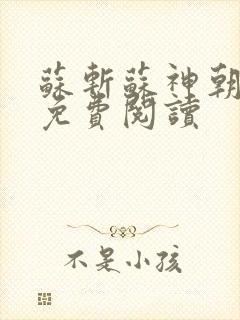 蘇斬蘇神朝
免費閱讀
不是小孩